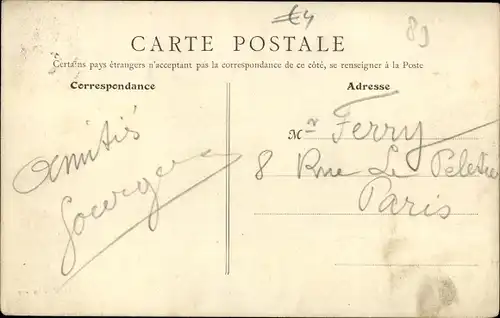 €4
89
CARTE POSTALE
Certains pays étrangers n'acceptant pas la correspondance de ce côté, se renseigner à la Poste
Correspondance
Adresse
Amitiés
Mr Ferry
8 Rue Le Peletier
Paris